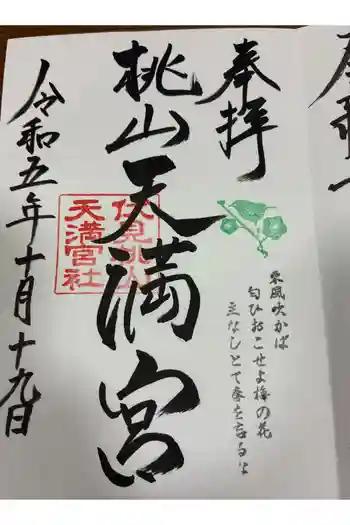 奉拝
桃山天満宮
伏見桃山
天満宮社
東風吹かば
匂ひおこせよ梅の花
主なしとて春を忘るな
令和五年十月十九日